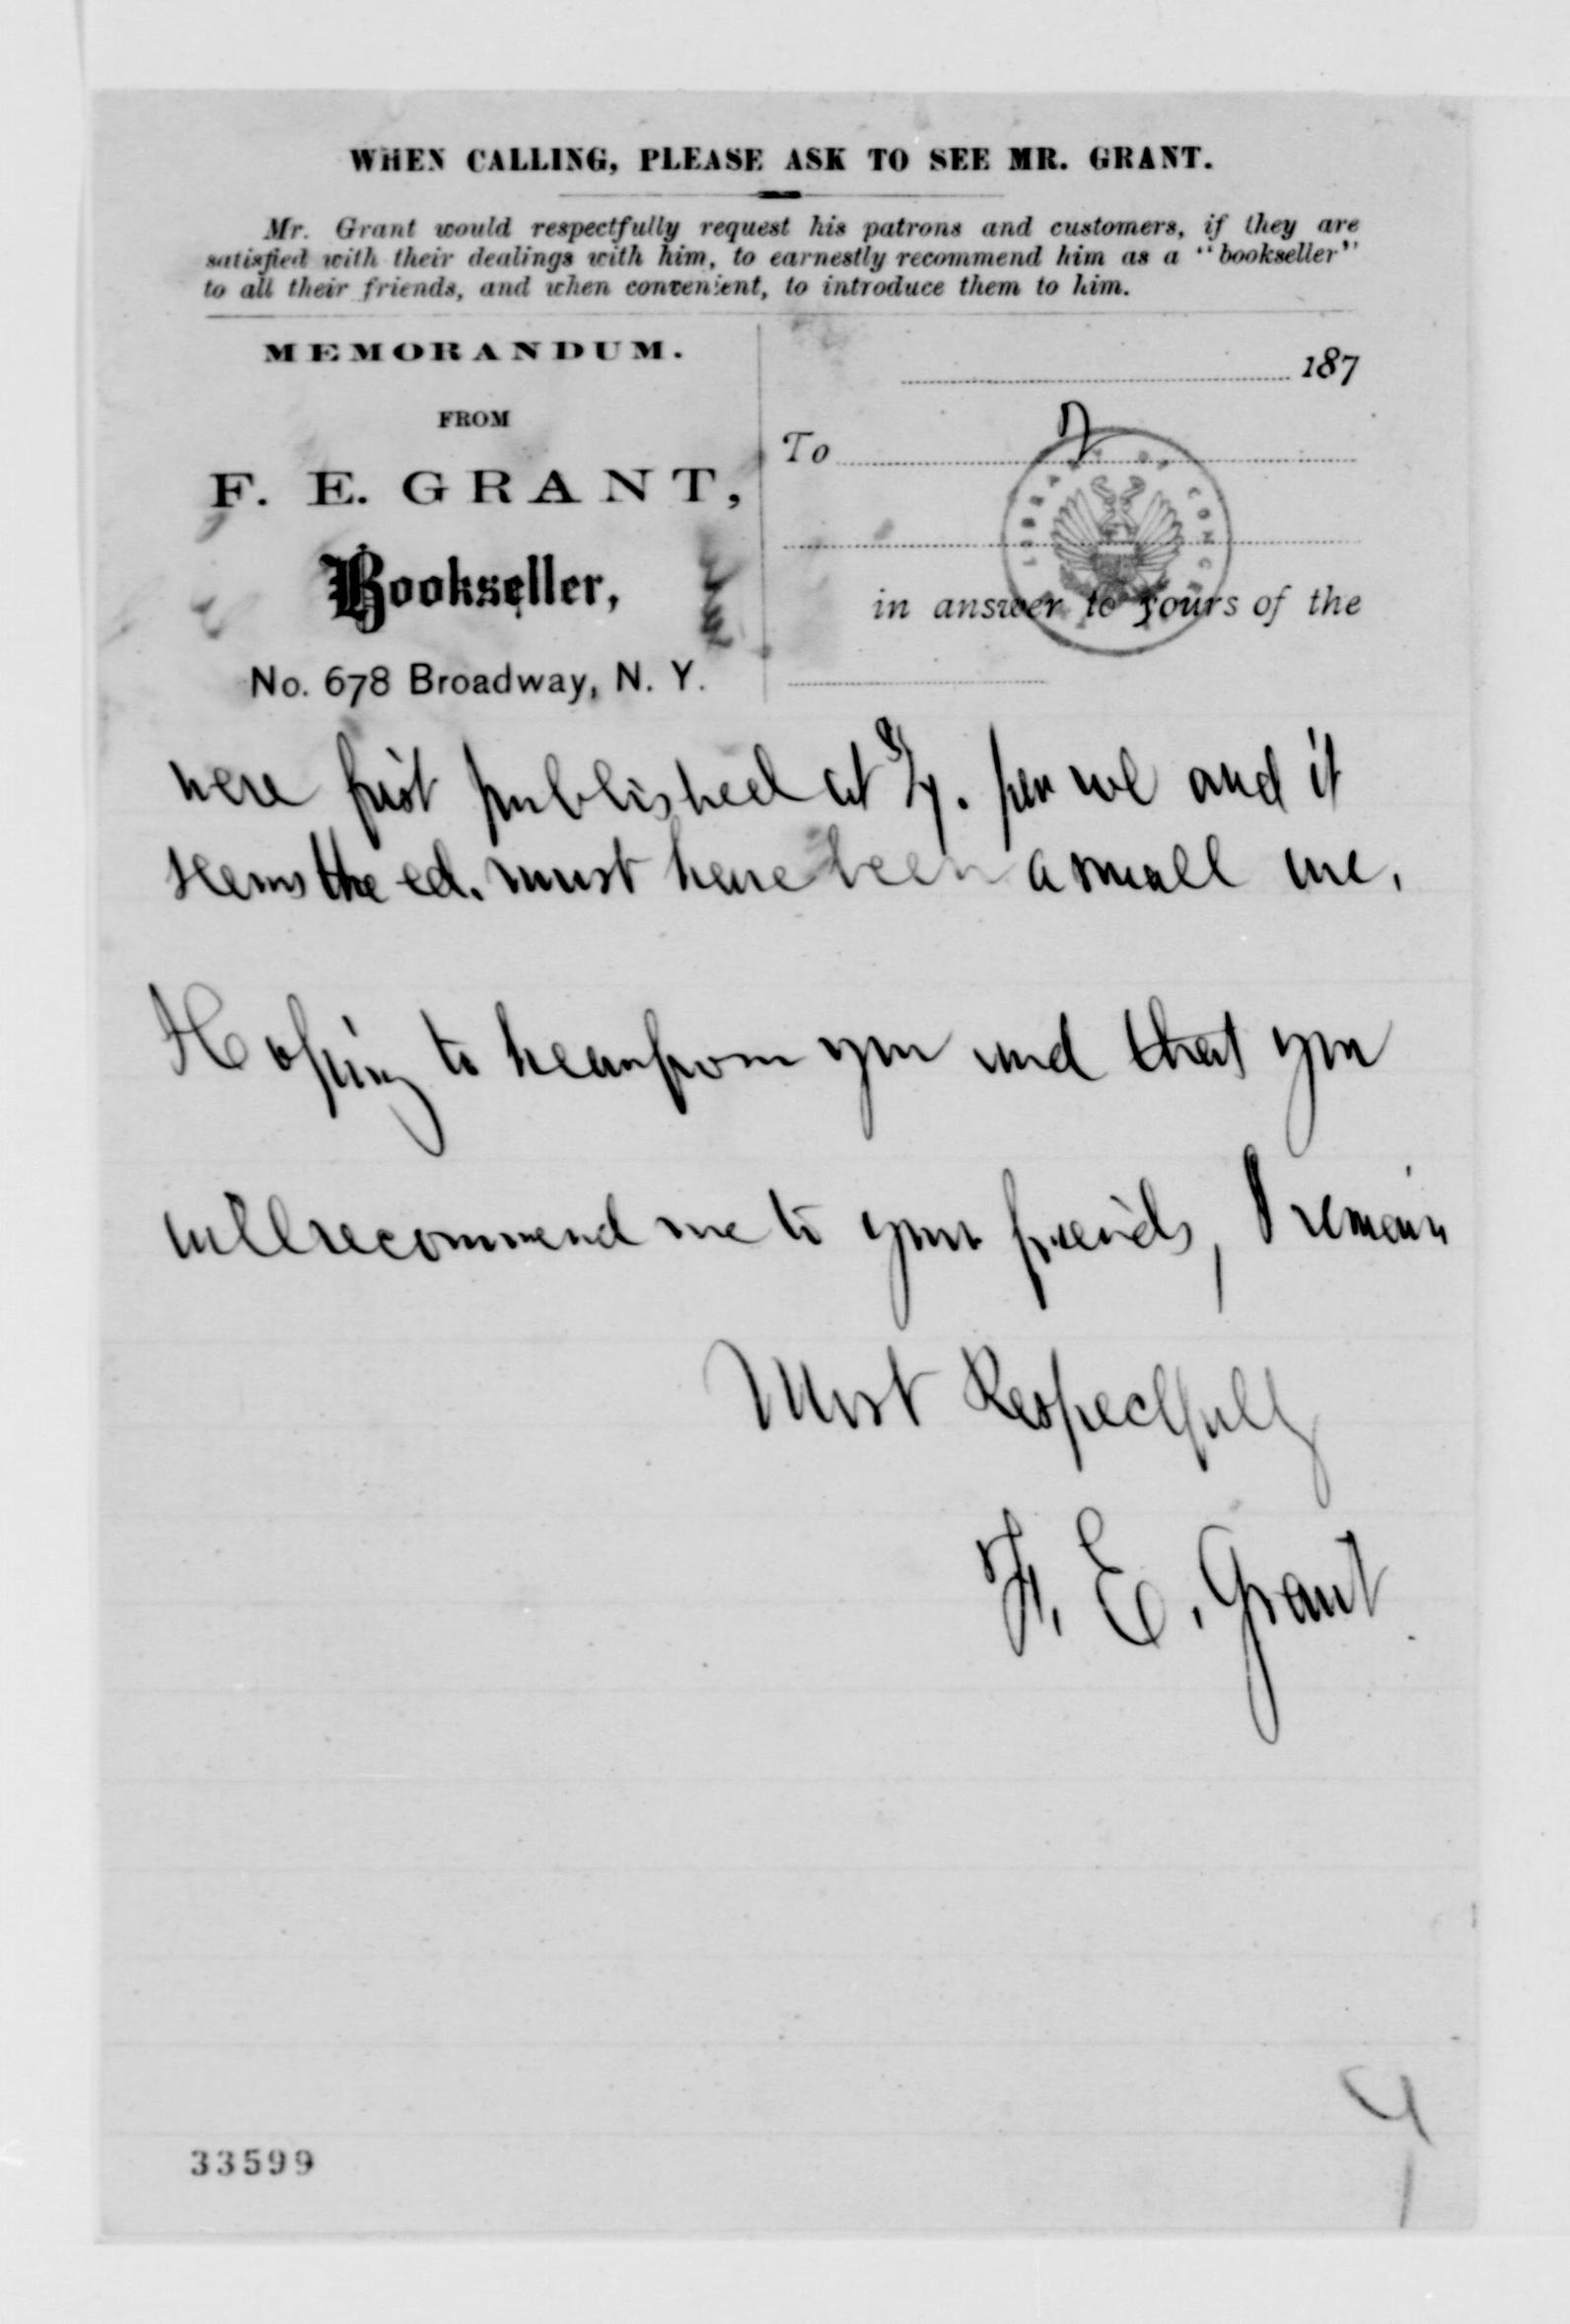 WHEN CALLING, PLEASE ASK TO SEE MR. GRANT.
Mr. Grant would respectfully request his patrons and customers, if they are
satisfied with their dealings with him, to earnestly recommend him as a "bookseller"
to all their friends, and when convenient, to introduce them to him.
MEMORANDUM.
FROM
F. E. GRANT,
Bookseller,
No. 678 Broadway, N. Y.
187
2
To
LIBRARY OF CONGRESS
in answer to yours of the
were first published at per vol and it
seems the ed. must have been a small one.
Hoping to hear from you and that you
will recommend me to your friends, I remain
Most Respectfully
F. E. Grant
33599